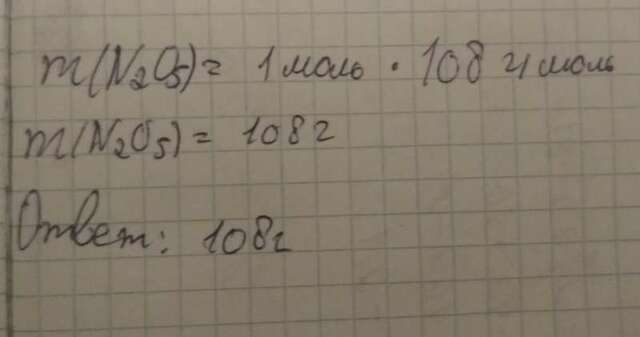 m(N₂O₅) = 1 моль · 108 г/моль
m(N₂O₅) = 108 г
Ответ: 108г